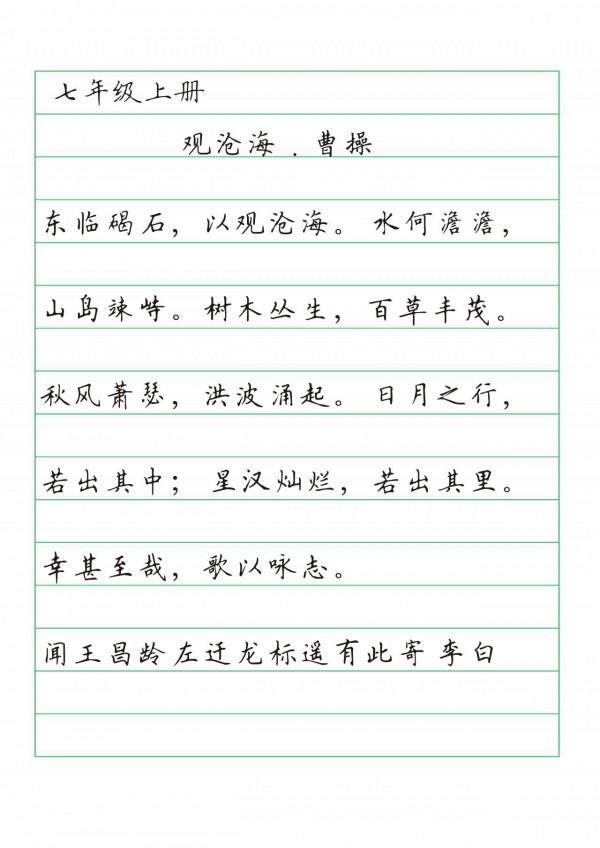 七年级上册
观沧海.曹操
东临碣石，以观沧海。水何澹澹，
山岛竦峙。树木丛生，百草丰茂。
秋风萧瑟，洪波涌起。日月之行，
若出其中；星汉灿烂，若出其里。
幸甚至哉，歌以咏志。
闻王昌龄左迁龙标遥有此寄 李白